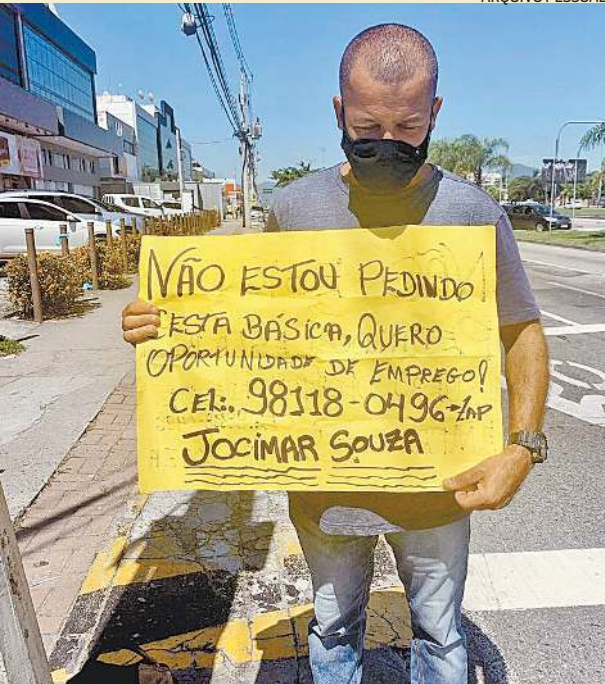 ARQUIVO PESSOAL
NÃO ESTOU PEDINDO
CESTA BÁSICA, QUERO
OPORTUNIDADE DE EMPREGO!
CEL:. 98118-0496-ZAP
JOCIMAR SOUZA